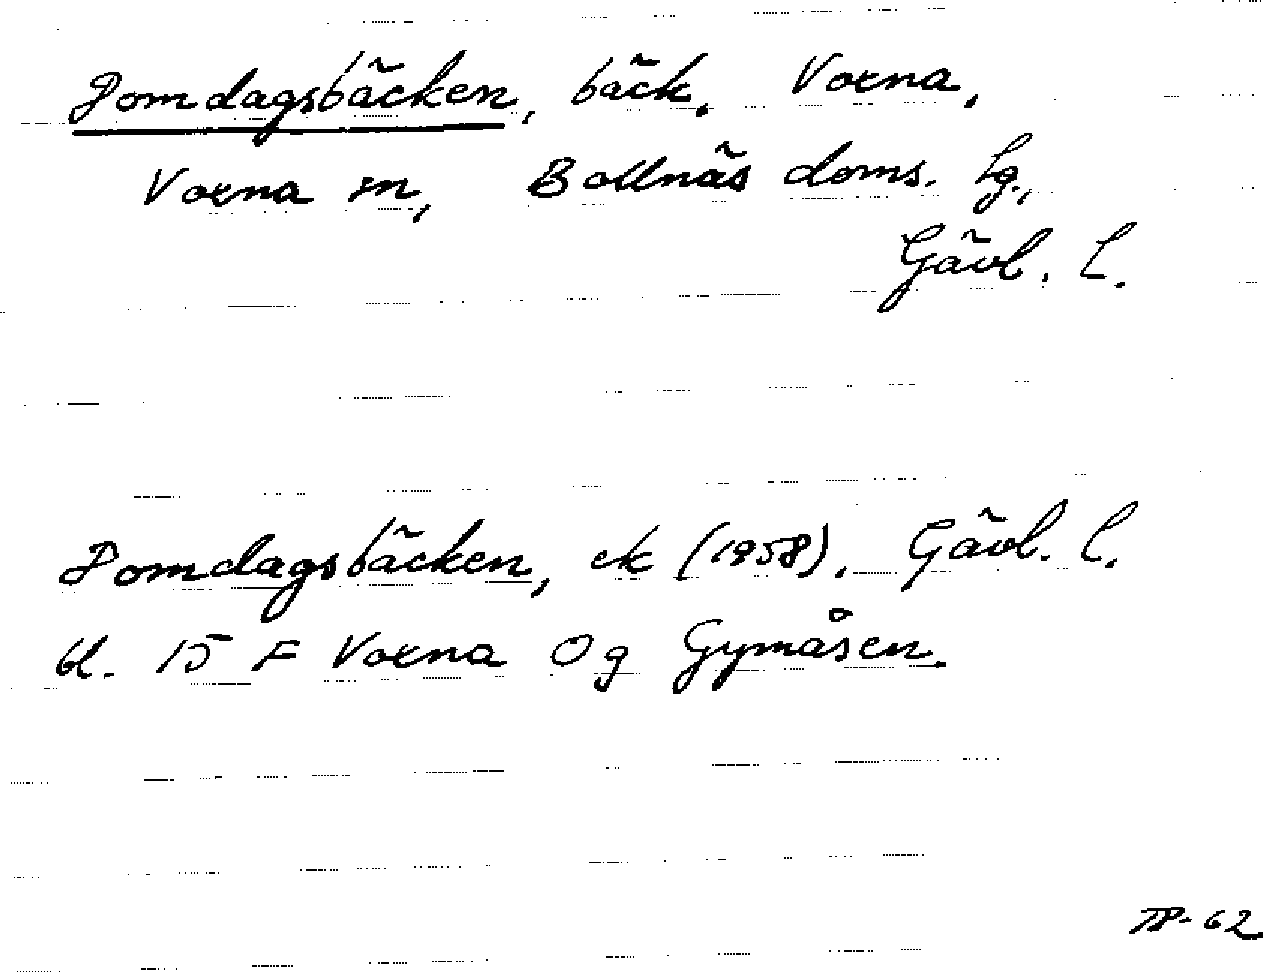 Domdagsbäcken, bäck, Voxna,
Voxna sn, Bollnäs doms. hg,
Gävl. l.
Domdagsbäcken, ek (1958). Gävl. l.
bl. 15 F Voxna Og Gymåsen.
TP-62